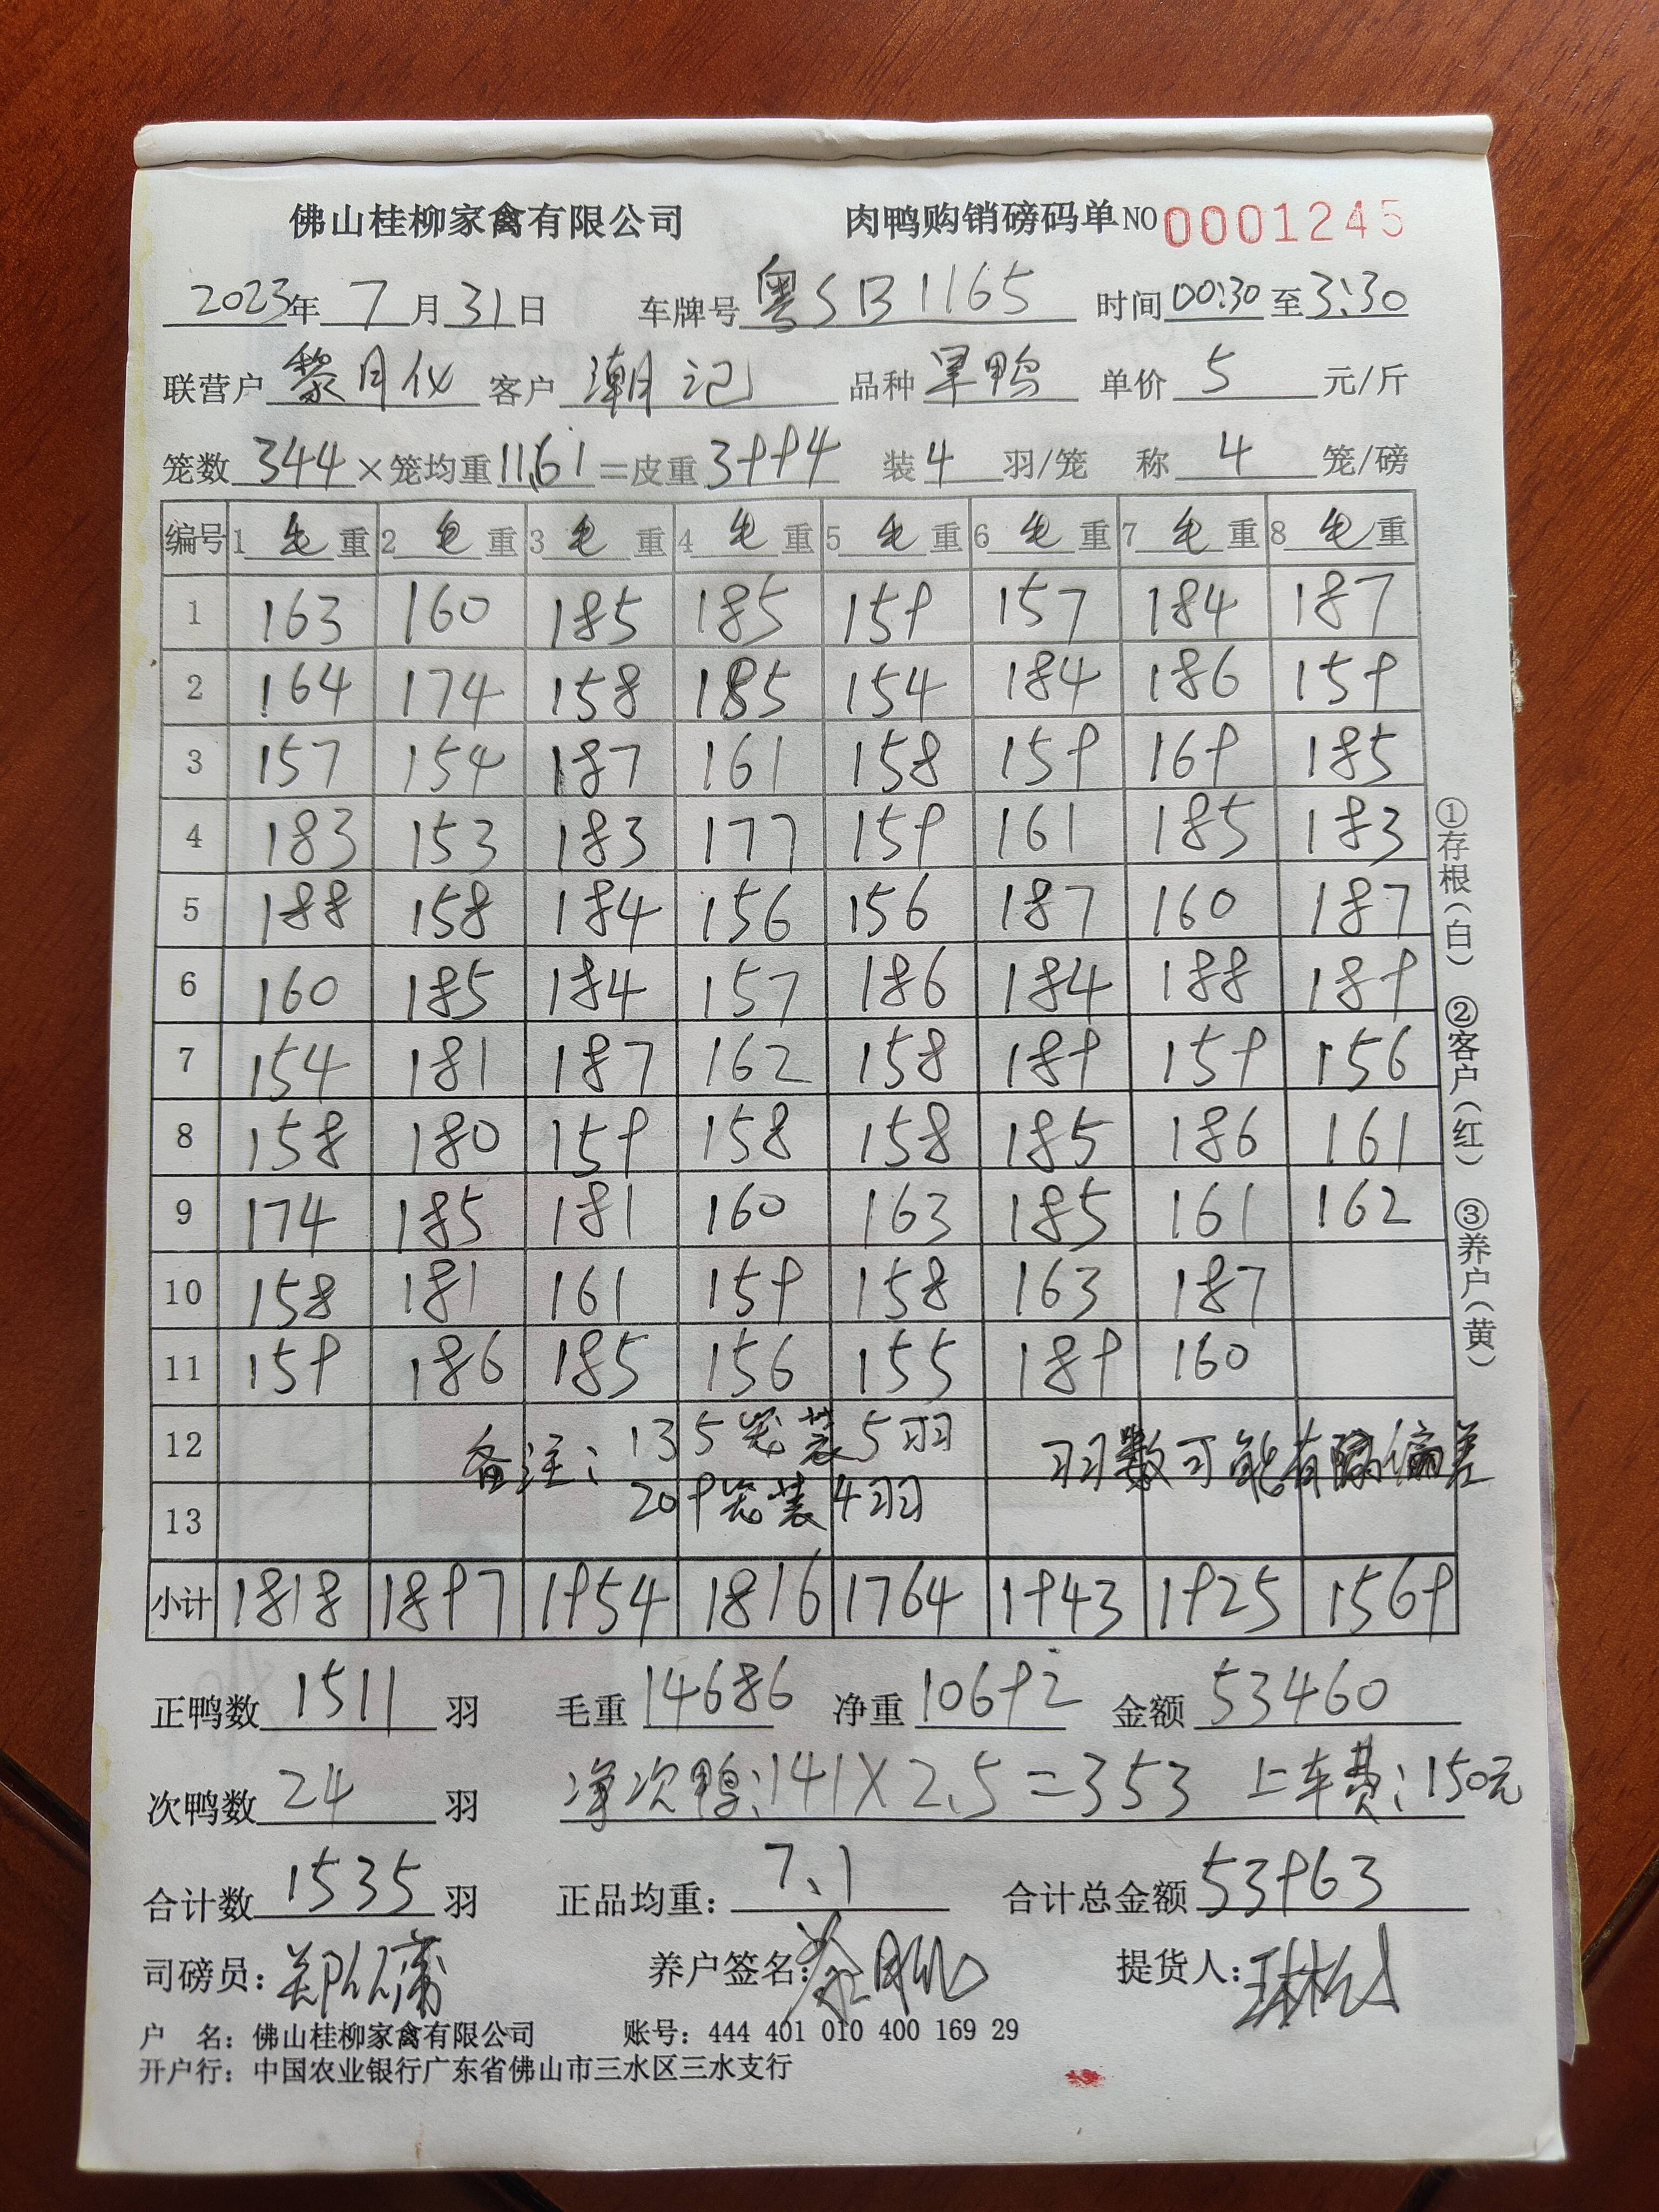 佛山桂柳家禽有限公司 肉鸭购销磅码单NO 0001245
2023年 7 月 31 日 车牌号 粤SB1165 时间 00:30 至 3:30
联营户 黎月仪 客户 潮记 品种 旱鸭 单价 5 元/斤
笼数 344 ×笼均重 11.61 =皮重 3994 装 4 羽/笼 称 4 笼/磅
编号 1 毛 重 2 毛 重 3 毛 重 4 毛 重 5 毛 重 6 毛 重 7 毛 重 8 毛 重
1 163 160 185 185 159 157 184 187
2 164 174 158 185 154 184 186 159
3 157 154 187 161 158 159 169 185
4 183 153 183 177 159 161 185 183
5 188 158 184 156 156 187 160 187
6 160 185 184 157 186 184 188 189
7 154 181 187 162 158 189 159 156
8 158 180 159 158 158 185 186 161
9 174 185 181 160 163 185 161 162
10 158 181 161 159 158 163 187
11 159 186 185 156 155 189 160
12 备注: 135笼装5羽 羽数可能有偏差
13 209笼装4羽
小计 1818 1897 1954 1816 1764 1943 1925 1569
正鸭数 1511 羽 毛重 14686 净重 10692 金额 53460
次鸭数 24 羽 净次鸭:141×2.5=353 上车费:150元
合计数 1535 羽 正品均重: 7.1 合计总金额 53963
司磅员: 养户签名: 提货人:
户 名: 佛山桂柳家禽有限公司 账号: 444 401 010 400 169 29
开户行: 中国农业银行广东省佛山市三水区三水支行
①存根(白) ②客户(红) ③养户(黄)